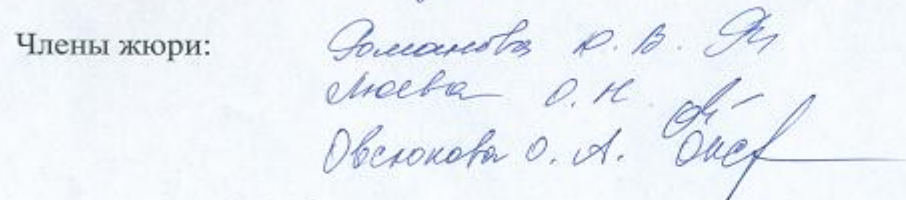 Члены жюри: Романова Ю. В.
Люева О. Н.
Овсюкова О. А.